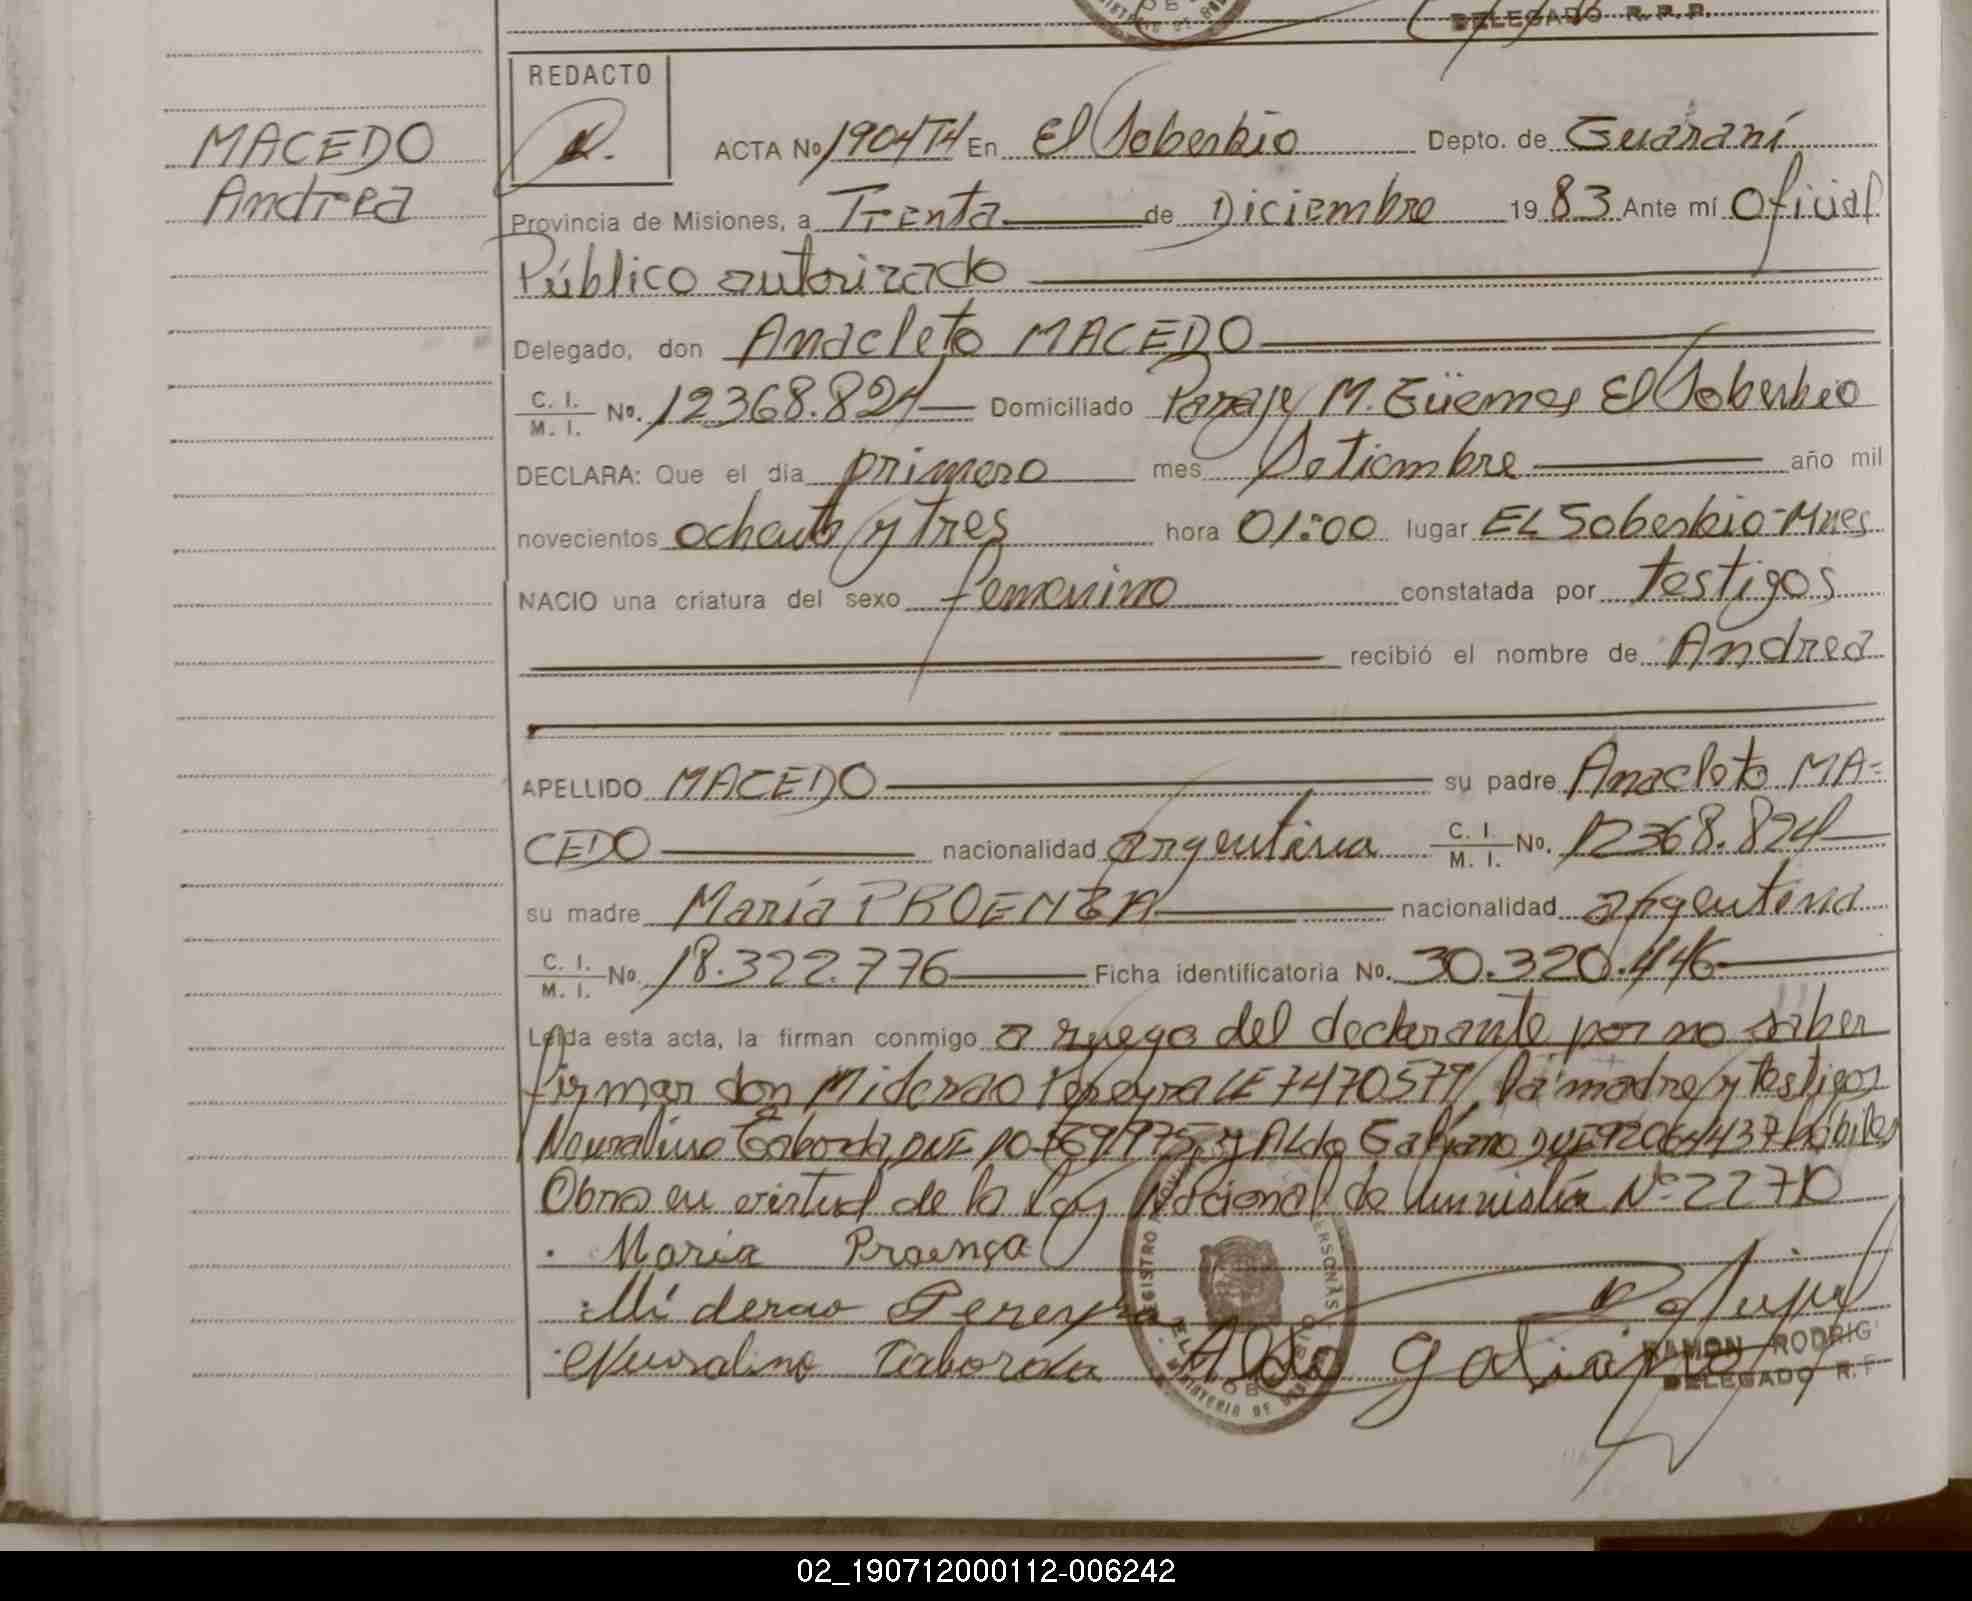 DELEGADO R.P.P.
REDACTO
MACEDO
Andrea
ACTA Nº 1904T4 En El Soberbio Depto. de Guaraní
Provincia de Misiones, a Trenta de Diciembre 1983 Ante mí Oficial
Público autorizado
Delegado, don Anacleto MACEDO
C. I. M. I. Nº. 12368.824 Domiciliado Paraje M. Güemes El Soberbio
DECLARA: Que el día primero mes Setiembre año mil
novecientos ochenta y tres hora 01:00 lugar EL Soberbio-Mnes
NACIO una criatura del sexo femenino constatada por testigos
recibió el nombre de Andrea
APELLIDO MACEDO su padre Anacleto MA-
CEDO nacionalidad argentina C. I. M. I. Nº. 12368.824
su madre María PROENZA nacionalidad argentina
C. I. M. I. Nº. 18.322.776 Ficha identificatoria Nº. 30.320.446
Leída esta acta, la firman conmigo a ruego del declarante por no saber
firmar don Miderao Pereyra LE 7470577 la madre y testigos
Neuralino Taborda DNI y Aldo Galiano DNI 92064437 hábiles
Obra en virtud de la Ley Nacional de Amnistía Nº 22710
Maria Proença
Miderao Pereyra
Neuralino Taborda Aldo Galiano
RAMON RODRIG
DELEGADO R.P
02_190712000112-006242